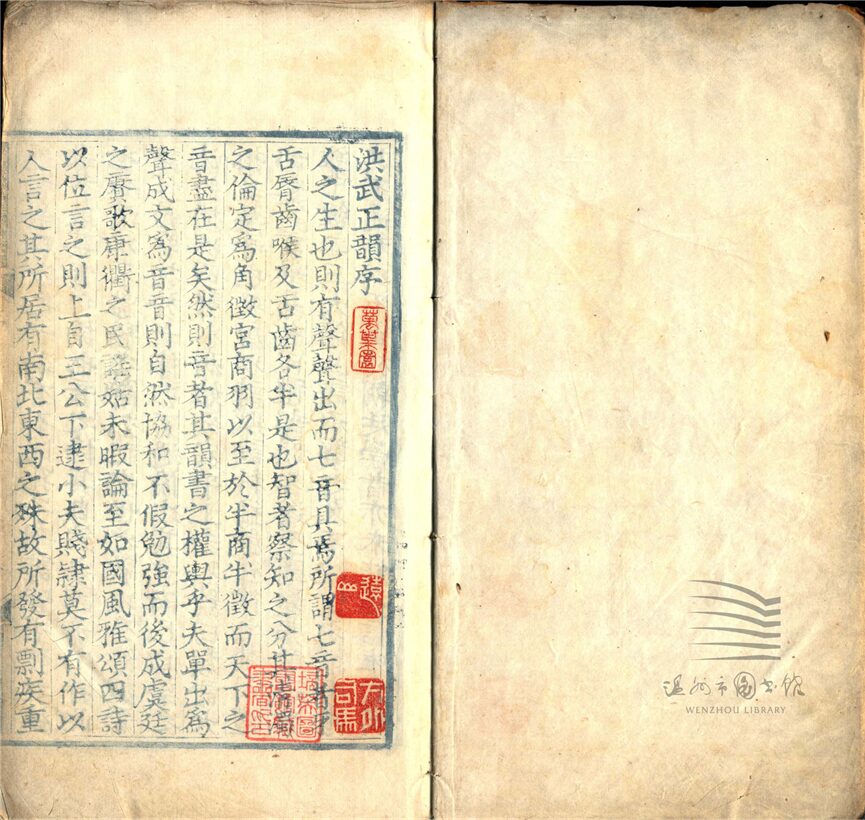 洪武正韻序
人之生也則有聲聲出而七音具焉所謂七音者牙
舌脣齒喉及舌齒各半是也智者察知之分其清濁
之倫定為角徵宮商羽以至於半商半徵而天下之
音盡在是矣然則音者其韻書之權輿乎夫單出為
聲成文為音音則自然協和不假勉強而後成虞廷
之賡歌康衢之民謠姑未暇論至如國風雅頌四詩
以位言之則上自王公下逮小夫賤隸莫不有作以
人言之其所居有南北東西之殊故所發有剽疾重
遠山
司馬
温州市图书馆
WENZHOU LIBRARY